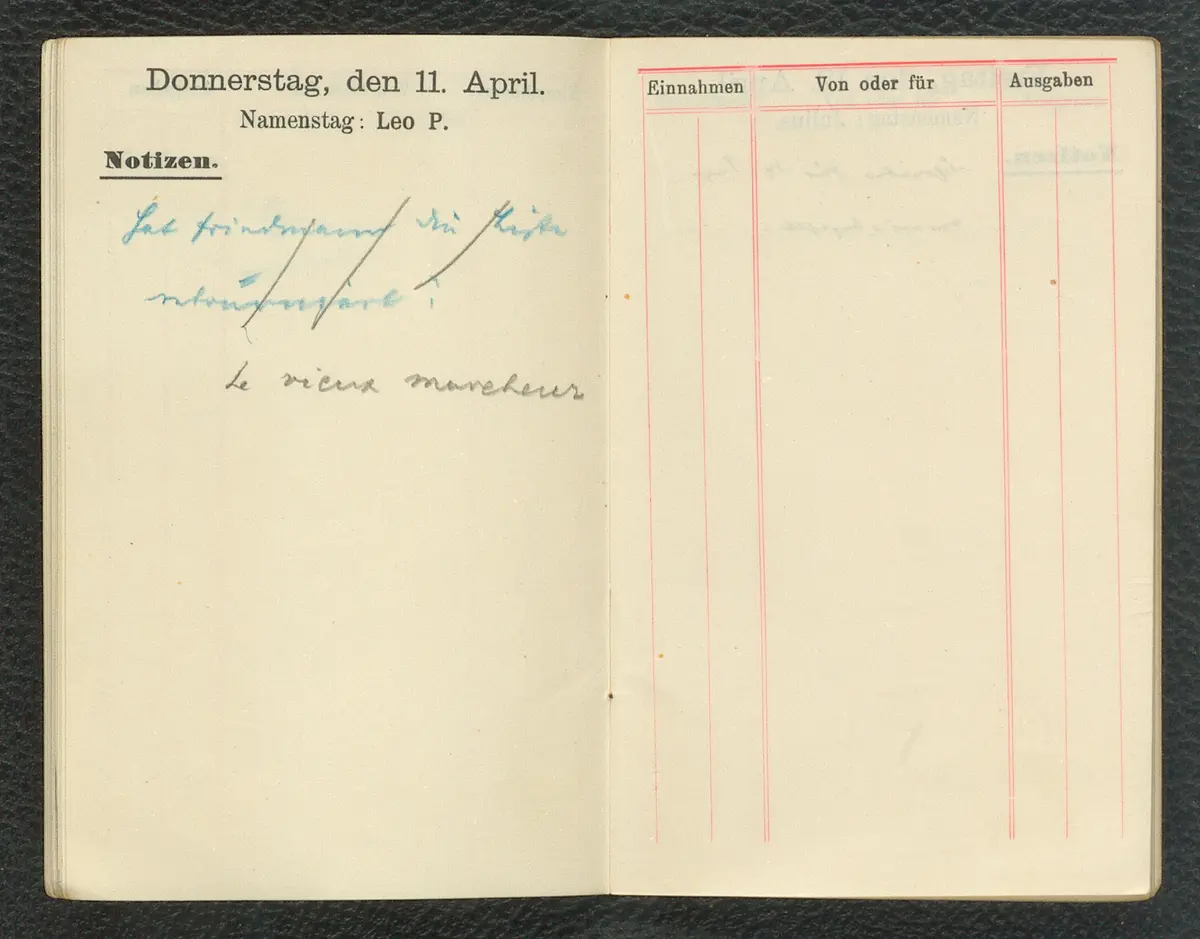 Donnerstag, den 11. April.
Namenstag: Leo P.
Notizen.
Hat Friedmann die Kiste
Le vieux marcheur
Einnahmen
Von oder für
Ausgaben